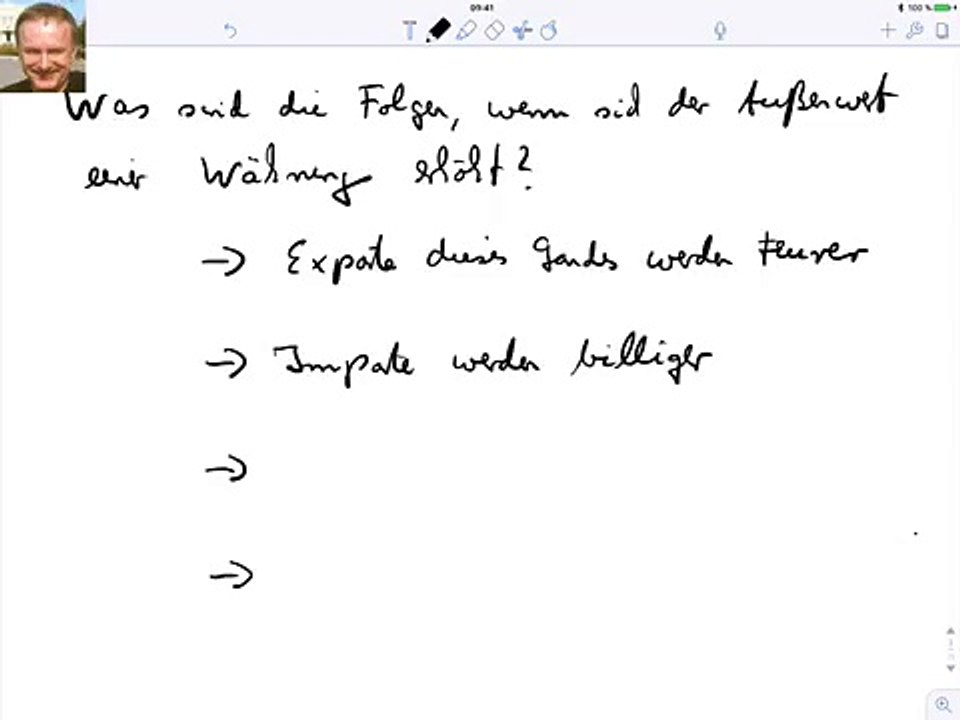 09:41
100 %
T
Was sind die Folgen, wenn sich der Außenwert
einer Währung erhöht?
→ Exporte dieses Landes werden teurer
→ Importe werden billiger
→
→